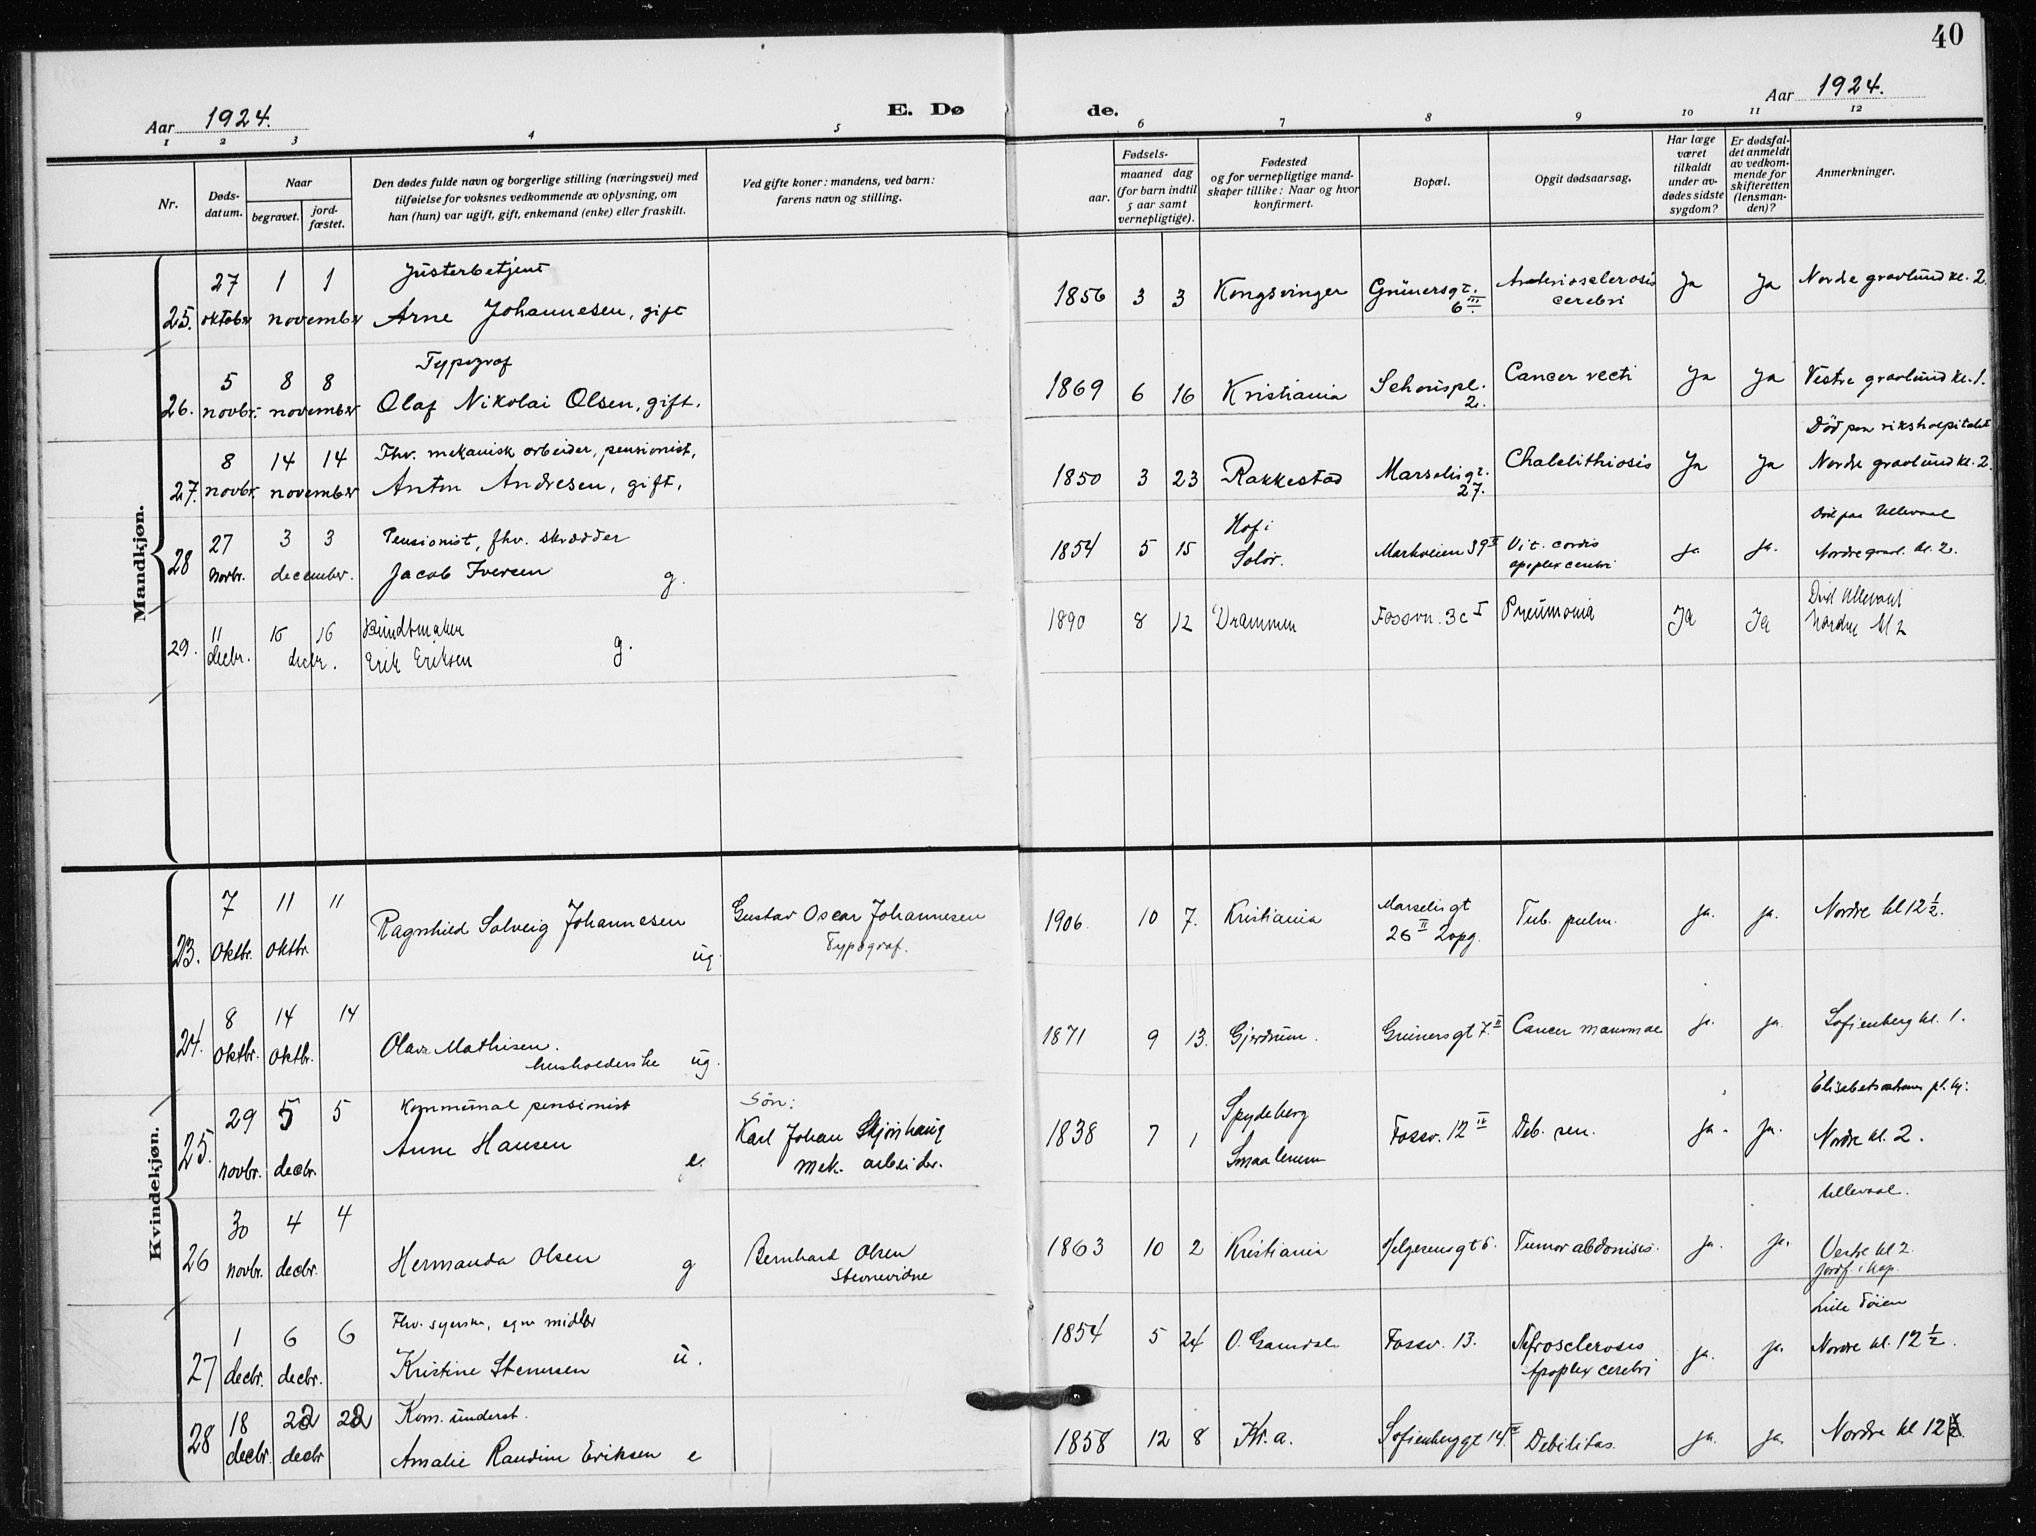 40
Aar 1924.
E. Døde.
Aar 1924.
1 2 3 4 5 6 7 8 9 10 11 12
Nr.
Døds-
datum.
Naar
begravet.
jord-
fæstet.
Den dødes fulde navn og borgerlige stilling (næringsvei) med
tilføielse for voksnes vedkommende av oplysning, om
han (hun) var ugift, gift, enkemand (enke) eller fraskilt.
Ved gifte koner: mandens, ved barn:
farens navn og stilling.
Fødsels-
aar.
maaned dag
(for barn indtil
5 aar samt
vernepligtige).
Fødested
og for vernepligtige mand-
skaper tillike: Naar og hvor
konfirmert.
Bopæl.
Opgit dødsaarsag.
Har læge
været
tilkaldt
under av-
dødes sidste
sygdom?
Er dødsfal-
det anmeldt
av vedkom-
mende for
skifteretten
(lensman-
den)?
Anmerkninger.
Mandkjøn.
27 1 1 Justerbetjent
25. oktober november Arne Johannesen, gift
1856 3 3 Kongsvinger Grünersgt. 6 III. Arteriosclerosis cerebri Ja Ja Nordre gravlund kl. 2.
5 8 8 Typograf
26. novbr. november Olaf Nikolai Olsen, gift.
1869 6 16 Kristiania Schouspl. 2. Cancer recti Ja Ja Vestre gravlund kl. 1.
8 14 14 Fhv. mekanisk arbeider, pensionist,
27. novbr. november Anton Andresen, gift.
1850 3 23 Rakkestad Marselisgt. 27. Cholelithiosis Ja Ja Død paa rikshospitalet
Nordre gravlund kl. 2.
27 3 3 Pensionist, fhv. skrædder
28 novbr. december. Jacob Iversen g.
1854 5 15 Hof i Solør. Markveien 39 II Vit. cordis apoplex cerebri ja ja. Død paa Ullevaal
Nordre gravl. kl. 2.
11 16 16 Bundtmaker
29. decbr. decbr. Erik Eriksen g.
1890 8 12 Drammen Fossvn. 3c I Pneumonia Ja Ja Død Ullevaal
Nordre kl 2
Kvindekjøn.
7 11 11
23. oktbr. oktbr. Ragnhild Solveig Johannesen ug. Gustav Oscar Johannesen
Typograf.
1906 10 7. Kristiania Marselisgt 26 II 2opg. Tub. pulm. ja. ja. Nordre kl 12 1/2.
8 14 14
24. oktbr. oktbr. Mathisen.
husholderske ug.
1871 9 13. Gjerdrum. Grünersgt 7. II Cancer mammae ja. ja. Sofienberg kl. 1.
29 5 5 Kommunal pensionist Søn:
25. novbr. decbr. Anne Hansen e. Karl Johan
mek. arbeider.
1838 7 1 Spydeberg Smaalenene Fossv. 12 IV Deb. sen. ja. ja. pl. hj:
Nordre kl. 2.
30 4 4
26 novbr. decbr. Hermanda Olsen g Bernhard Olsen
Stevnevidne
1863 10 2 Kristiania Helgesensgt 6. Tumor abdominis. ja. ja. Ullevaal.
Vestre kl 2.
Jordf. i kap.
1 6 6 Fhv. syerske, egne midler
27 decbr. decbr. Kristine Stenersen u.
1854 5 24 Ø. Gausdal Fossv. 13. Nefrosclerosis Apoplex cerebri ja. ja. Lille Tøien
Nordre kl. 12 1/2.
18 22 22 Kom. underst.
28 decbr. decbr Amalie Randine Eriksen e
1858 12 8 Kr.a. Sofienberggt 14 IV Debilitas. ja. ja. Nordre kl 12